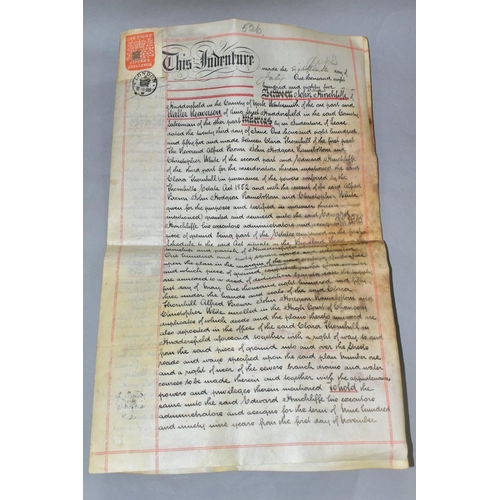 526
LONDON
This Indenture made the day of
One thousand eight
hundred and eighty five
Between John Hinchliffe of
Huddersfield in the County of York of the one part and
Walter Haigh of Huddersfield in the said County
of the other part Whereas by an Indenture of Lease
dated the twenty third day of June One thousand eight hundred
and fifty five and made between Clara Thornhill of the first part
The Reverend Alfred Brown John Hodgson Ramsbotham and
Christopher Wilde of the second part and Edward Hinchliffe
of the third part for the consideration therein mentioned the said
Clara Thornhill in pursuance of the powers conferred by the
Thornhills Estate Act 1852 and with the consent of the said Alfred
Brown John Hodgson Ramsbotham and Christopher Wilde
given for the purposes and testified in manner therein
mentioned granted and demised unto the said Edward
Hinchliffe his executors administrators and assigns
piece of ground being part of the Estates comprised in the
Schedule to the said Act situate in the
township and parish of Huddersfield
One hundred and
upon the plan in the margin of the
and which piece of ground
are annexed to a deed of declaration
first day of May One thousand eight hundred and fifty
three under the hands and seals of the said Clara
Thornhill Alfred Brown John Hodgson Ramsbotham and
Christopher Wilde enrolled in the High Court of Chancery
duplicates of which deeds and the plans thereto annexed are
also deposited in the office of the said Clara Thornhill in
Huddersfield aforesaid together with a right of way to and
from the said piece of ground into and over the streets
roads and ways specified upon the said plan number one
and a right of user of the sewers branch drains and water
courses to be made therein and together with the appurtenances
powers and privileges therein mentioned to hold the
same unto the said Edward Hinchliffe his executors
administrators and assigns for the term of Nine hundred
and ninety nine years from the first day of November